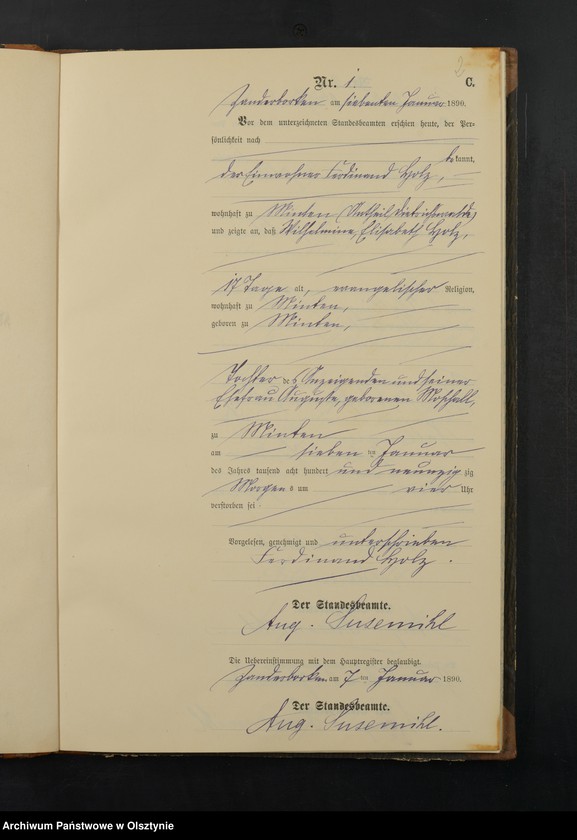 2
Nr. 1. C.
Zanderborken am siebenten Januar 1890.
Vor dem unterzeichneten Standesbeamten erschien heute, der Per-
sönlichkeit nach
bekannt,
der Einwohner Ferdinand Holz,
wohnhaft zu Minten (Antheil Dietrichswalde)
und zeigte an, daß Wilhelmine Elisabeth Holz,
17 Tage alt, evangelischer Religion,
wohnhaft zu Minten,
geboren zu Minten,
Tochter des Anzeigenden und seiner
Ehefrau Auguste, geborenen
zu Minten
am sieben ten Januar
des Jahres tausend acht hundert und neunzig zig
Morgens um vier Uhr
verstorben sei
Vorgelesen, genehmigt und unterschrieben
Ferdinand Holz.
Der Standesbeamte.
Aug. Susemihl
Die Uebereinstimmung mit dem Hauptregister beglaubigt.
Zanderborken am 7 ten Januar 1890.
Der Standesbeamte.
Aug. Susemihl.
Archiwum Państwowe w Olsztynie